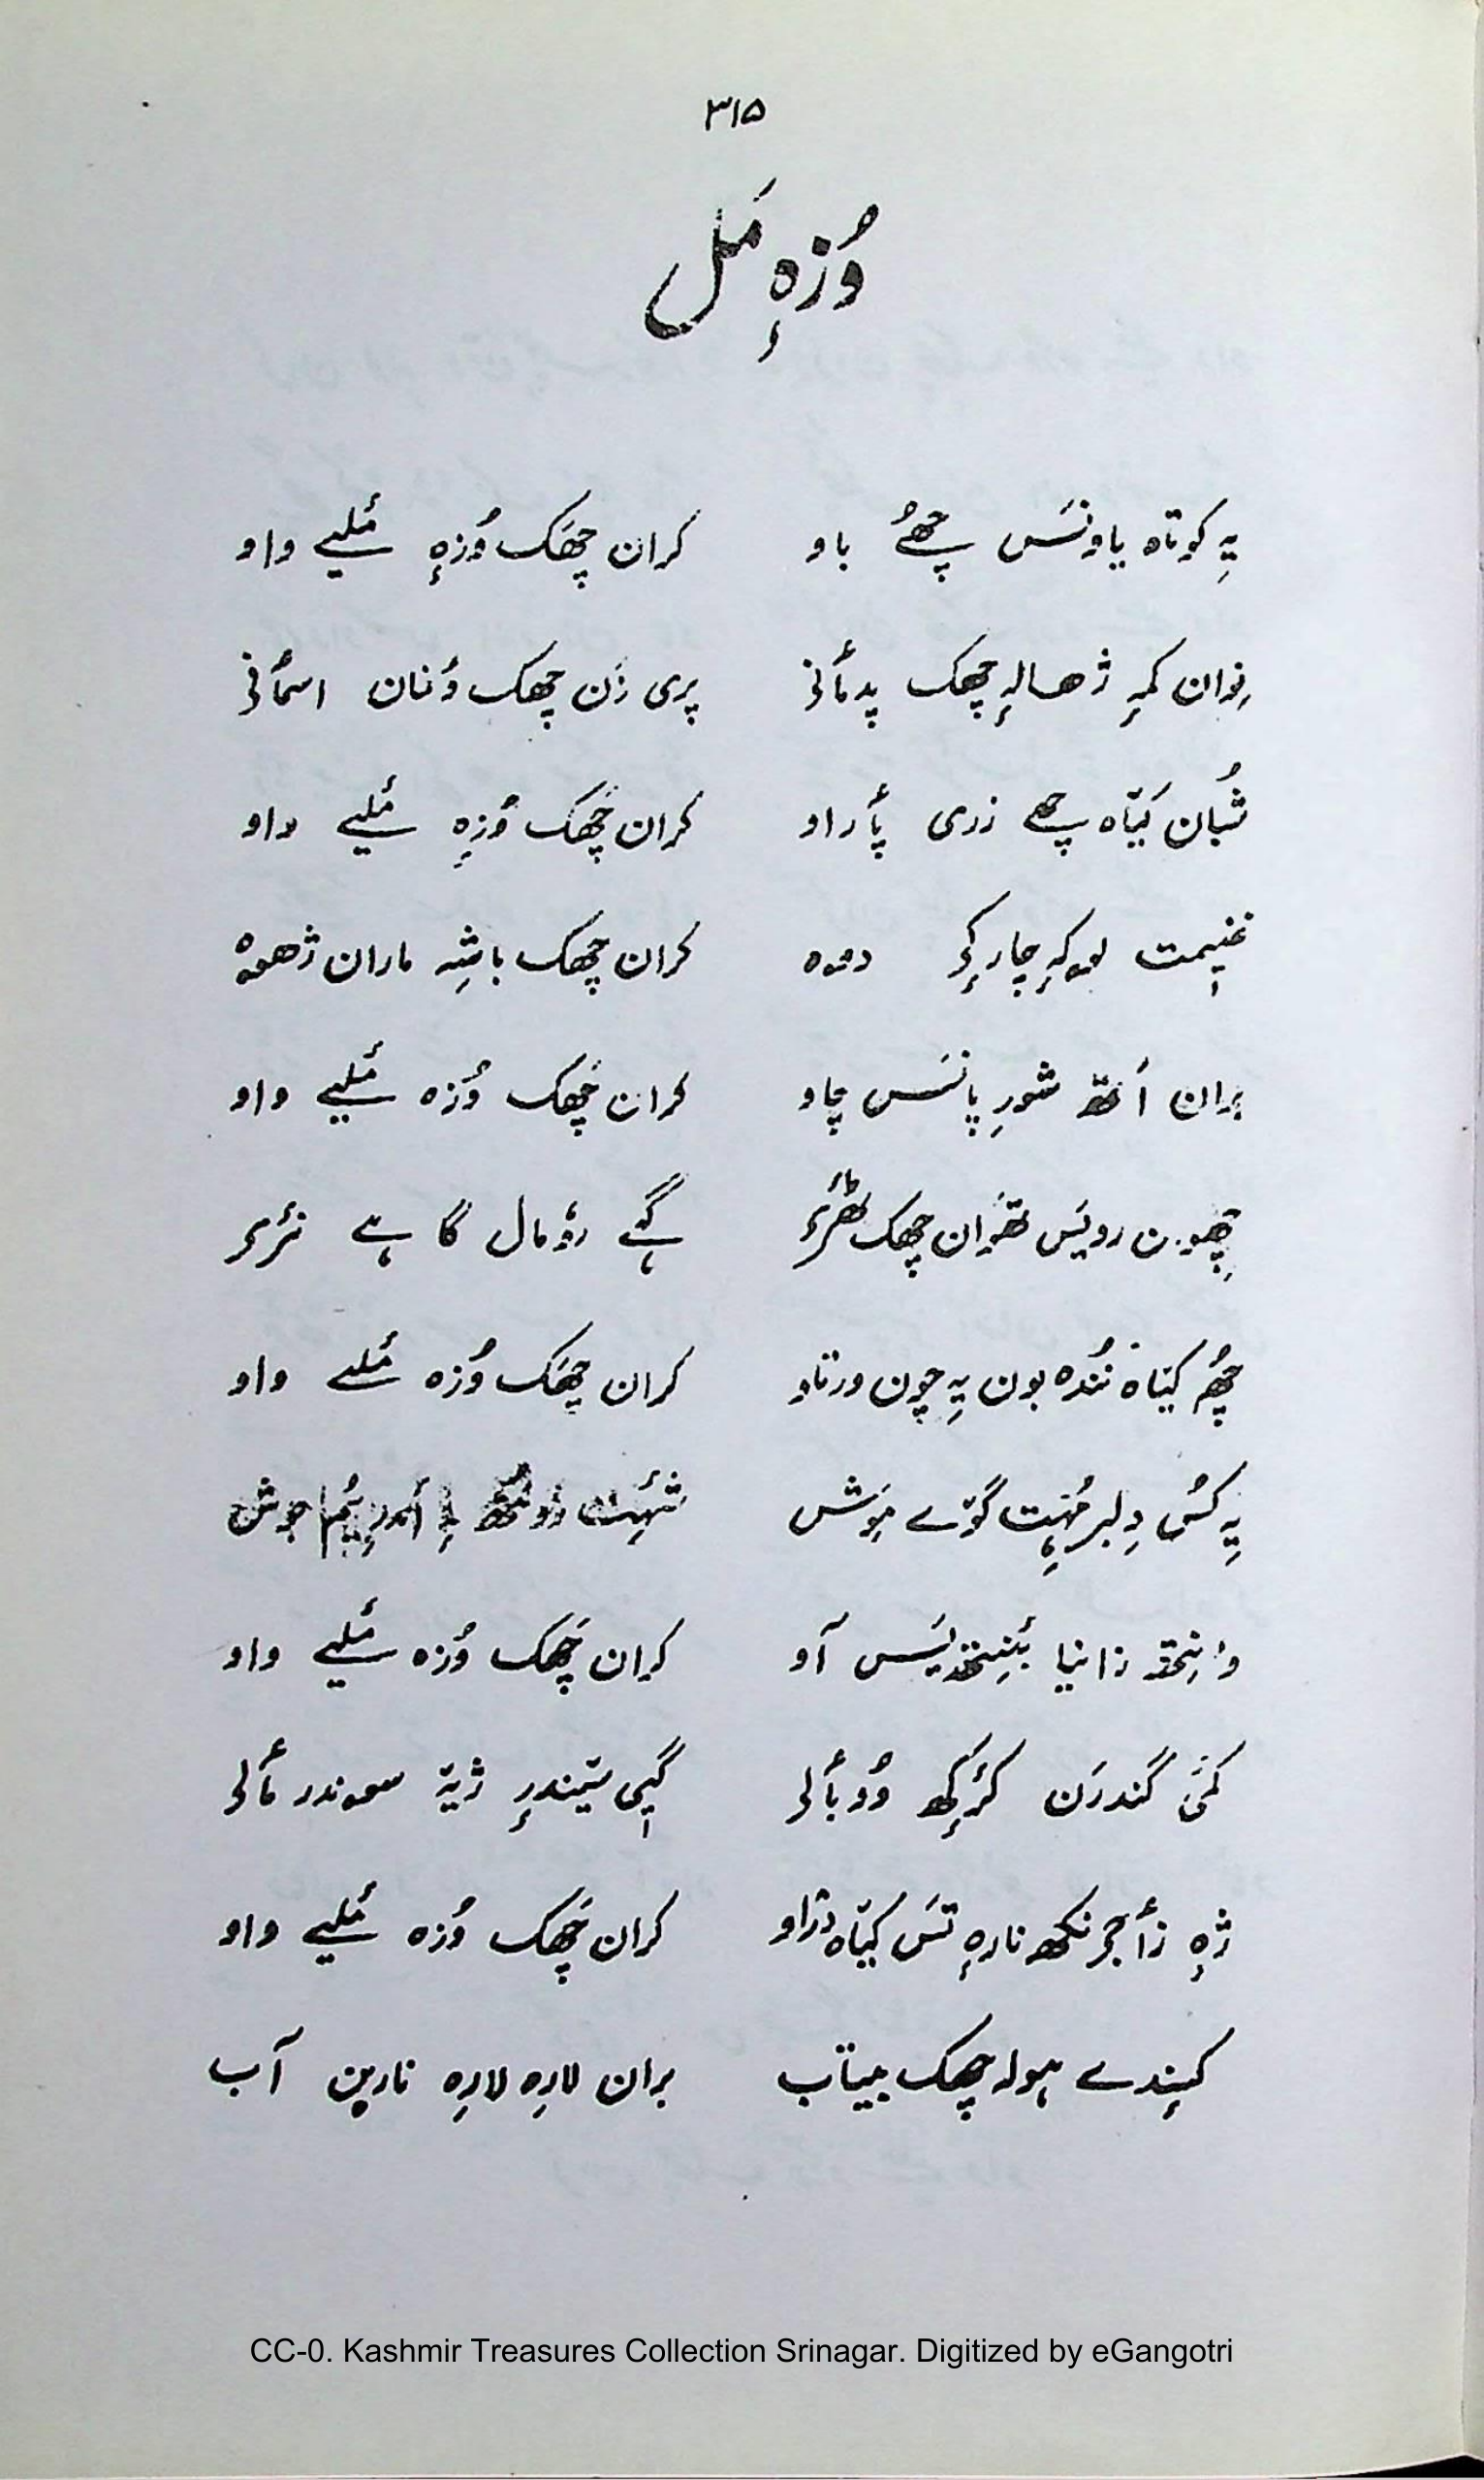 ۳۱۵
وُزہٕ مَل
یہِ کوتاہ یاونَس چھُے باو کران چھَک وُزہٕ مَٔلیے واو
نِوان کمہِ ژھالہٕ چھک پدمأنی پری زَن چھک وَنان اسمأنی
شُبان کیّاہ چھے زری پأراو کران چھَک وُزہٕ مَٔلیے واو
غنیٖمت لوکہٕ چارٕکۍ دوہ کران چھک باشہِ ماران ژھوہ
بران اَتھۍ شورِ پانَس چاو کران چھَک وُزہ مَٔلیے واو
رویَس تھَوان چھک ٹھٔرۍ گہے رؤمال گاہے نٔرۍ
چھُم کیّاہ نُندہ بون یہِ چون ورتاو کران چھَک وُزہ مَٔلیے واو
یہِ کُس دِلبر مُہِت گوے ہَوش جوش
زانیا آو کران چھَک وُزہ مَٔلیے واو
کمۍ گندرَن کٔرٕکھ وُوبألی گیٖی تیٚندرٕ ژیٚتہ سوندر مألی
ژہٕ نارہٕ تَس کیّاہ دژاو کران چھَک وُزہ مَٔلیے واو
چھک بیتاب بران لارِہ لارِہ نارین آب
CC-0. Kashmir Treasures Collection Srinagar. Digitized by eGangotri